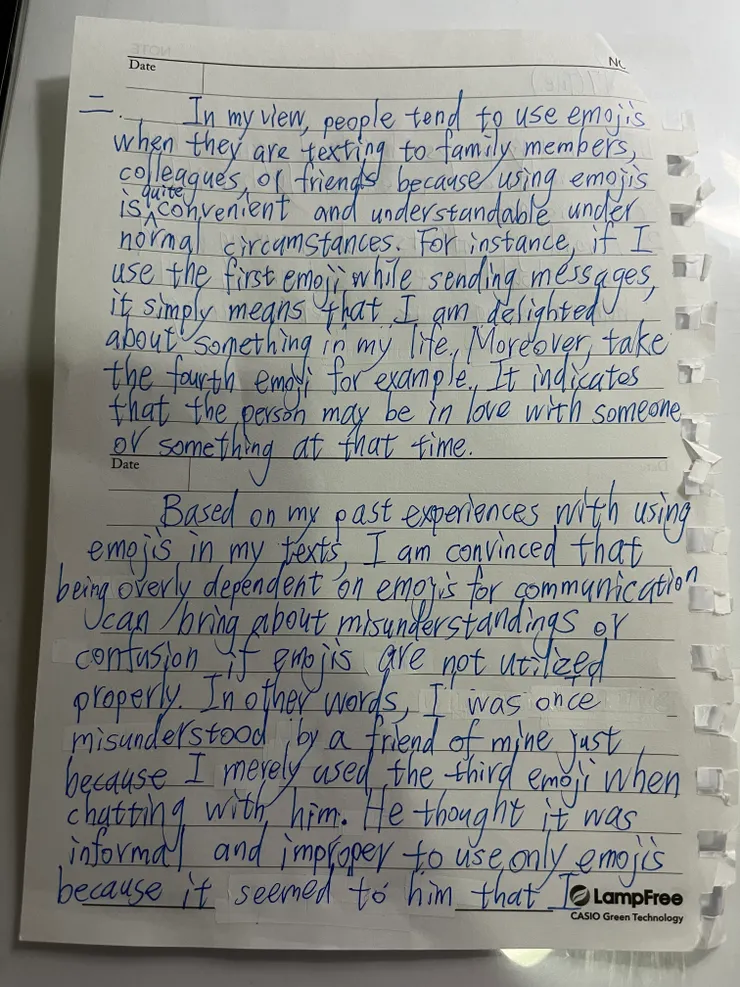 NOTE
Date
NO
二. In my view, people tend to use emojis
when they are texting to family members,
colleagues, or friends because using emojis
is quite convenient and understandable under
normal circumstances. For instance, if I
use the first emoji while sending messages,
it simply means that I am delighted
about something in my life. Moreover, take
the fourth emoji for example. It indicates
that the person may be in love with someone
or something at that time.
Date
Based on my past experiences with using
emojis in my texts, I am convinced that
being overly dependent on emojis for communication
can bring about misunderstandings or
confusion if emojis are not utilized
properly. In other words, I was once
misunderstood by a friend of mine just
because I merely used the third emoji when
chatting with him. He thought it was
informal and improper to use only emojis
because it seemed to him that I
LampFree
CASIO Green Technology